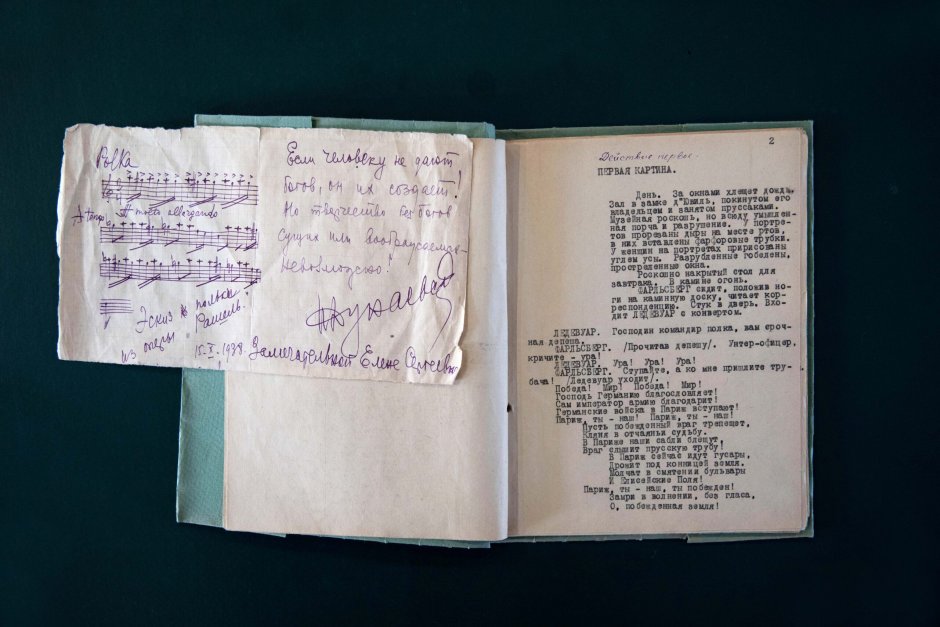 Polka
Если человеку не дают
богов, он их создает!
Но творчество без богов
сущих или воображаемых -
невозможно!
A tempo
Эскиз к польке
из оперы „Рашель“
15.X.1938. Замечательной Елене Сергеевне
2
Действие первое.
ПЕРВАЯ КАРТИНА.
День. За окнами хлещет дождь.
Зал в замке д'Ювиль, покинутом его
владельцем и занятом пруссаками.
Музейная роскошь, но всюду умышлен-
ная порча и разрушение. У портре-
тов прорезаны дыры на месте ртов,
в них вставлены фарфоровые трубки.
У женщин на портретах пририсованы
углем усы. Разрубленные гобелены,
простреленные окна.
Роскошно накрытый стол для
завтрака. В камине огонь.
ФАРЛЬСБЕРГ сидит, положив но-
ги на каминную доску, читает кор-
респонденцию. Стук в дверь. Вхо-
дит ЛЕДЕВУАР с конвертом.
ЛЕДЕВУАР. Господин командир полка, вам сроч-
ная депеша.
ФАРЛЬСБЕРГ. /Прочитав депешу/. Унтер-офицер,
кричите - ура!
ЛЕДЕВУАР. Ура! Ура! Ура!
ФАРЛЬСБЕРГ. Ступайте, а ко мне пришлите тру-
бача! /Ледевуар уходит/.
Победа! Мир! Победа! Мир!
Господь Германию благословляет!
Сам император армию благодарит!
Германские войска в Париж вступают!
Париж, ты - наш! Париж, ты - наш!
Пусть побежденный враг трепещет,
Кляня в отчаяньи судьбу.
В Париже наши сабли блещут,
Враг слышит прусскую трубу!
В Париж сейчас идут гусары,
Дрожит под конницей земля.
Молчат в смятении бульвары
И Елисейские Поля!
Париж, ты - наш, ты побежден!
Замри в волнении, без гласа,
О, побежденная земля!